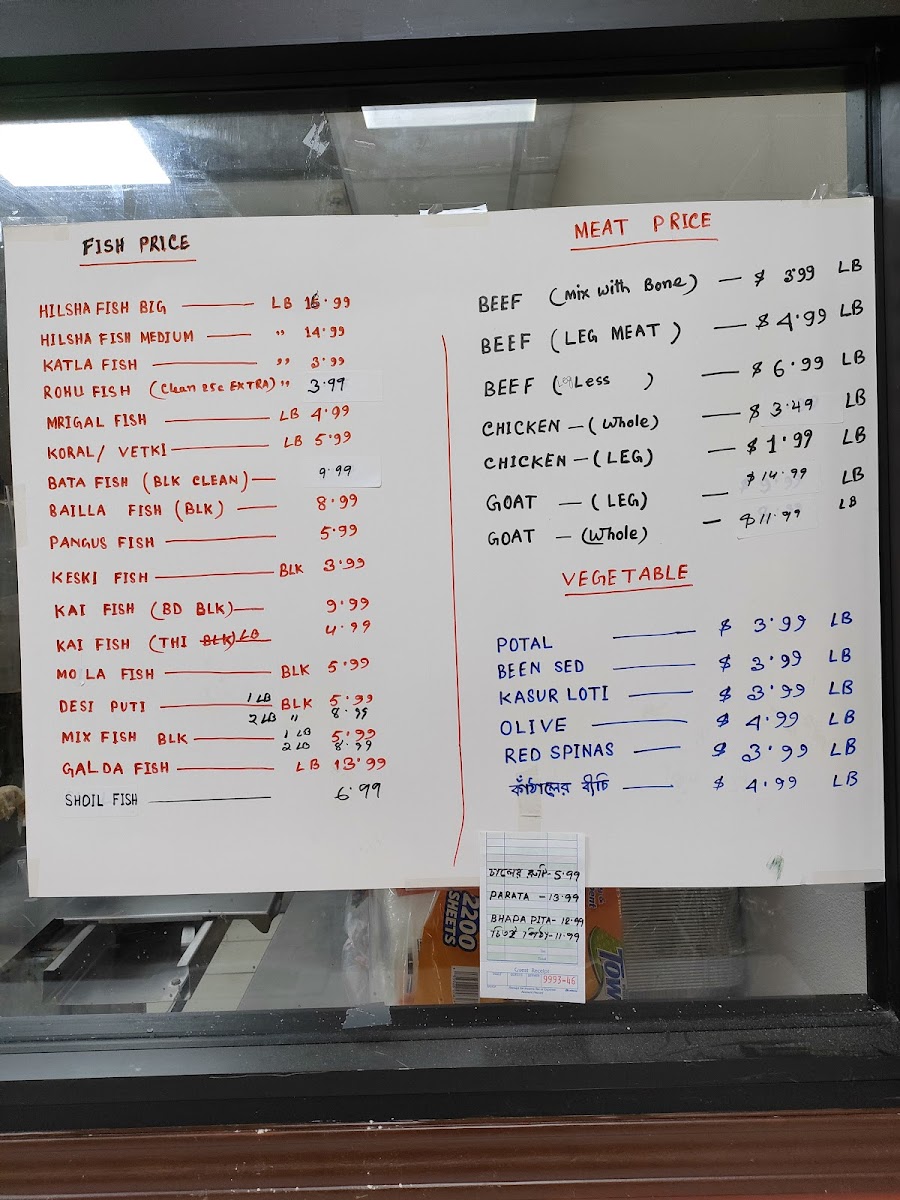 FISH PRICE
HILSHA FISH BIG — LB 16.99
HILSHA FISH MEDIUM — " 14.99
KATLA FISH — " 3.99
ROHU FISH (Clean 25c EXTRA) " 3.99
MRIGAL FISH — LB 4.99
KORAL/ VETKI — LB 5.99
BATA FISH (BLK CLEAN) — 9.99
BAILLA FISH (BLK) — 8.99
PANGUS FISH — 5.99
KESKI FISH — BLK 3.99
KAI FISH (BD BLK) — 9.99
KAI FISH (THI BLK) LB 4.99
MOLA FISH — BLK 5.99
DESI PUTI — 1 LB BLK 5.99
2 LB " 8.99
MIX FISH BLK — 1 LB 5.99
2 LB 8.99
GALDA FISH — LB 13.99
SHOIL FISH — 6.99
MEAT PRICE
BEEF (Mix with Bone) — $ 3.99 LB
BEEF (LEG MEAT) — $ 4.99 LB
BEEF (Less) — $ 6.99 LB
CHICKEN — (Whole) — $ 3.49 LB
CHICKEN — (LEG) — $ 1.99 LB
GOAT — (LEG) — $ 14.99 LB
GOAT — (Whole) — $ 11.99 LB
VEGETABLE
POTAL — $ 3.99 LB
BEEN SED — $ 3.99 LB
KASUR LOTI — $ 3.99 LB
OLIVE — $ 4.99 LB
RED SPINAS — $ 3.99 LB
কাঁঠালের বীচি — $ 4.99 LB
চালের রুটি - 5.99
PARATA - 13.99
BHAPA PITA - 12.99
চিতই পিঠা - 11.99
Guest Receipt
9993-46
2200
SHEETS